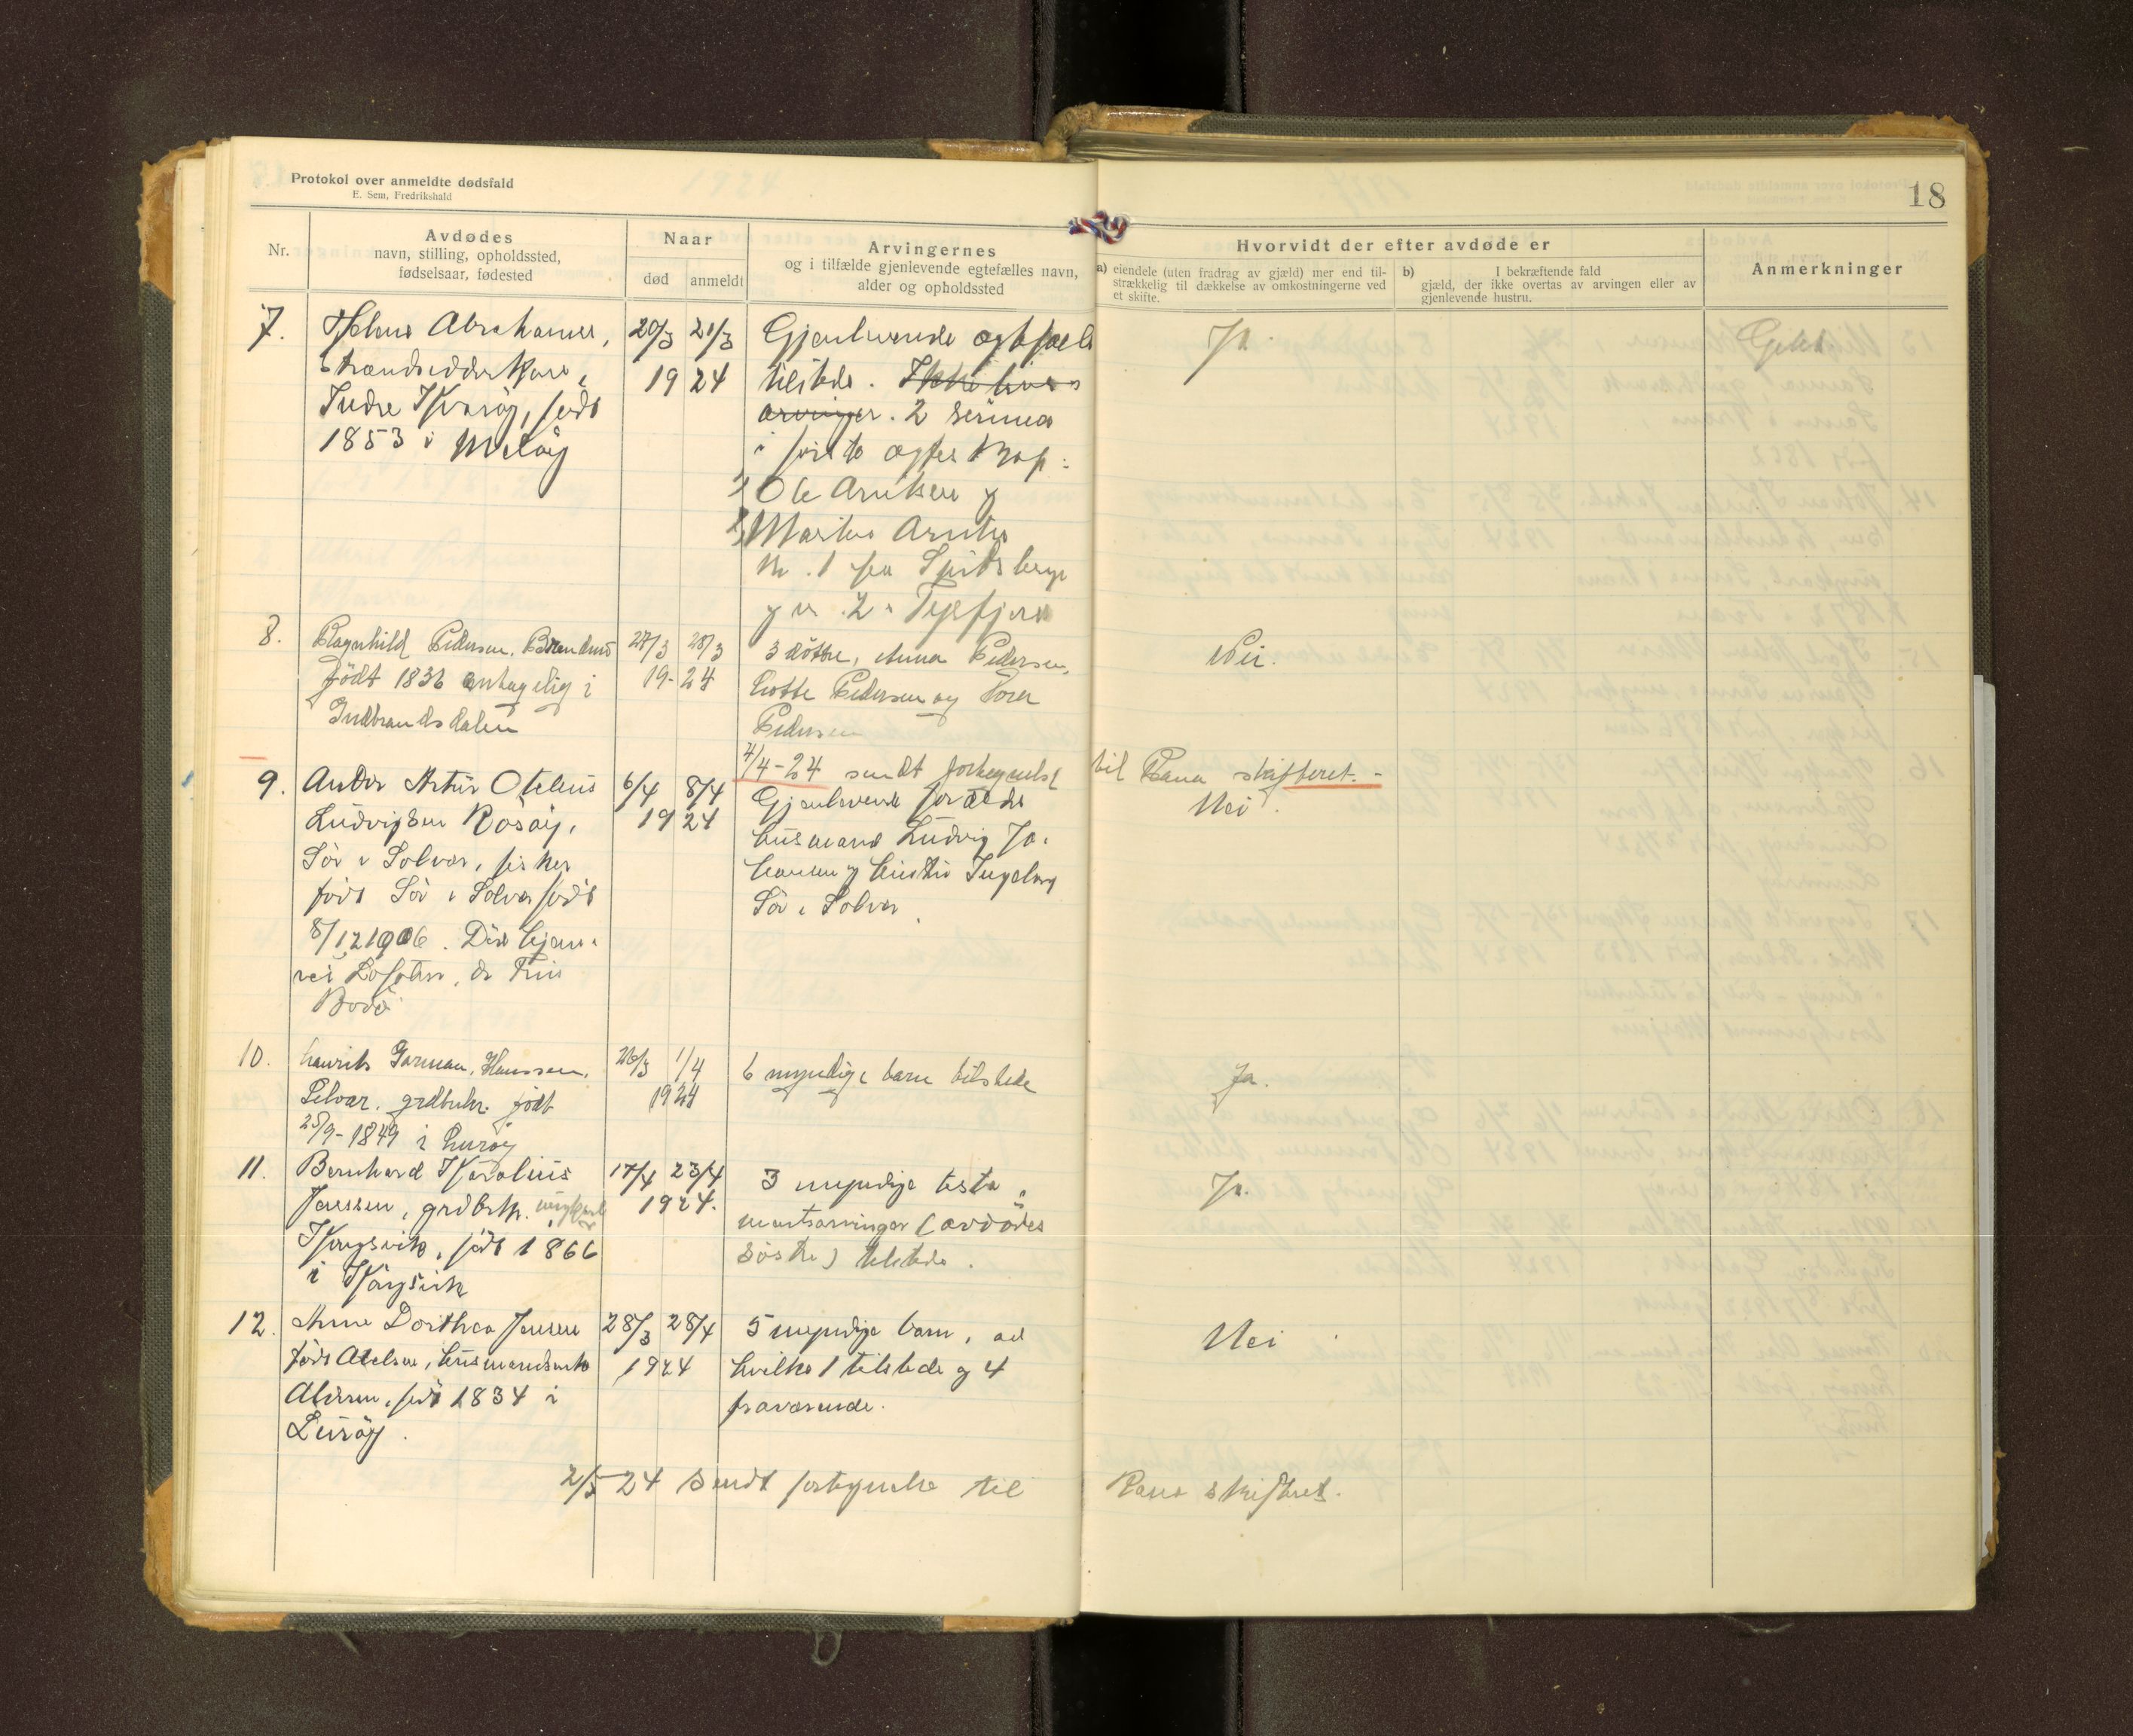 Protokol over anmeldte dødsfald
E. Sem, Fredrikshald
18
Nr.
Avdødes
navn, stilling, opholdssted,
fødselsaar, fødested
Naar
død
anmeldt
Arvingernes
og i tilfælde gjenlevende egtefælles navn,
alder og opholdssted
Hvorvidt der efter avdøde er
a) eiendele (uten fradrag av gjæld) mer end til-
strækkelig til dækkelse av omkostningerne ved
et skifte.
b) I bekræftende fald
gjæld, der ikke overtas av arvingen eller av
gjenlevende hustru.
Anmerkninger
7.
Abrahamsen,
Indre Kvarøy, født
1853 i Meløy
20/3 21/3
1924
Gjenlevende egtefælle
tilstede. Ikke livs
arvinger. 2 sønner
i første egteskap:
1) Ole Arntsen og
2) Martin Arntsen
nr. 1 paa Spitsbergen
og nr. 2 i
Ja.
8.
Ragnhild Pedersen,
født 1836 antagelig i
Gudbrandsdalen
27/3 28/3
19-24
3 døttre, Anna Pedersen,
Lotte Pedersen og
Pedersen
Nei.
4/4-24 sendt fortegnelse til Rana skifteret.-
9.
Artur Otelius
Ludvigsen Rosøy,
Sør i Solvær, fisker
født Sør i Solvær født
8/12 1906. Død
Lofoten,
Bodø
6/4 8/4
1924
Gjenlevende forældre
husmand Ludvig Jo-
hansen og hustru Ingeborg
Sør i Solvær.
Nei.
10.
Henrik Jarman Hanssen,
Selvær. grdbruker. født
25/9-1849 i Lurøy
26/3 1/4
1924
6 myndige barn tilstede
Ja.
11.
Bernhard Karolius
Jenssen, grdbrk. ungkarl
født 1866
i
17/4 23/4
1924.
3 myndige testa-
mentsarvinger (avdødes
søstre) tilstede.
Ja.
12.
Anne Dorthea Jensen
født Atelsen, husmandsenke
født 1834 i
Lurøy.
28/3 28/4
1924
5 myndige barn, av
hvilke 1 tilstede og 4
fraværende.
Nei
2/5 24 Sendt fortegnelse til Rana skifteret.